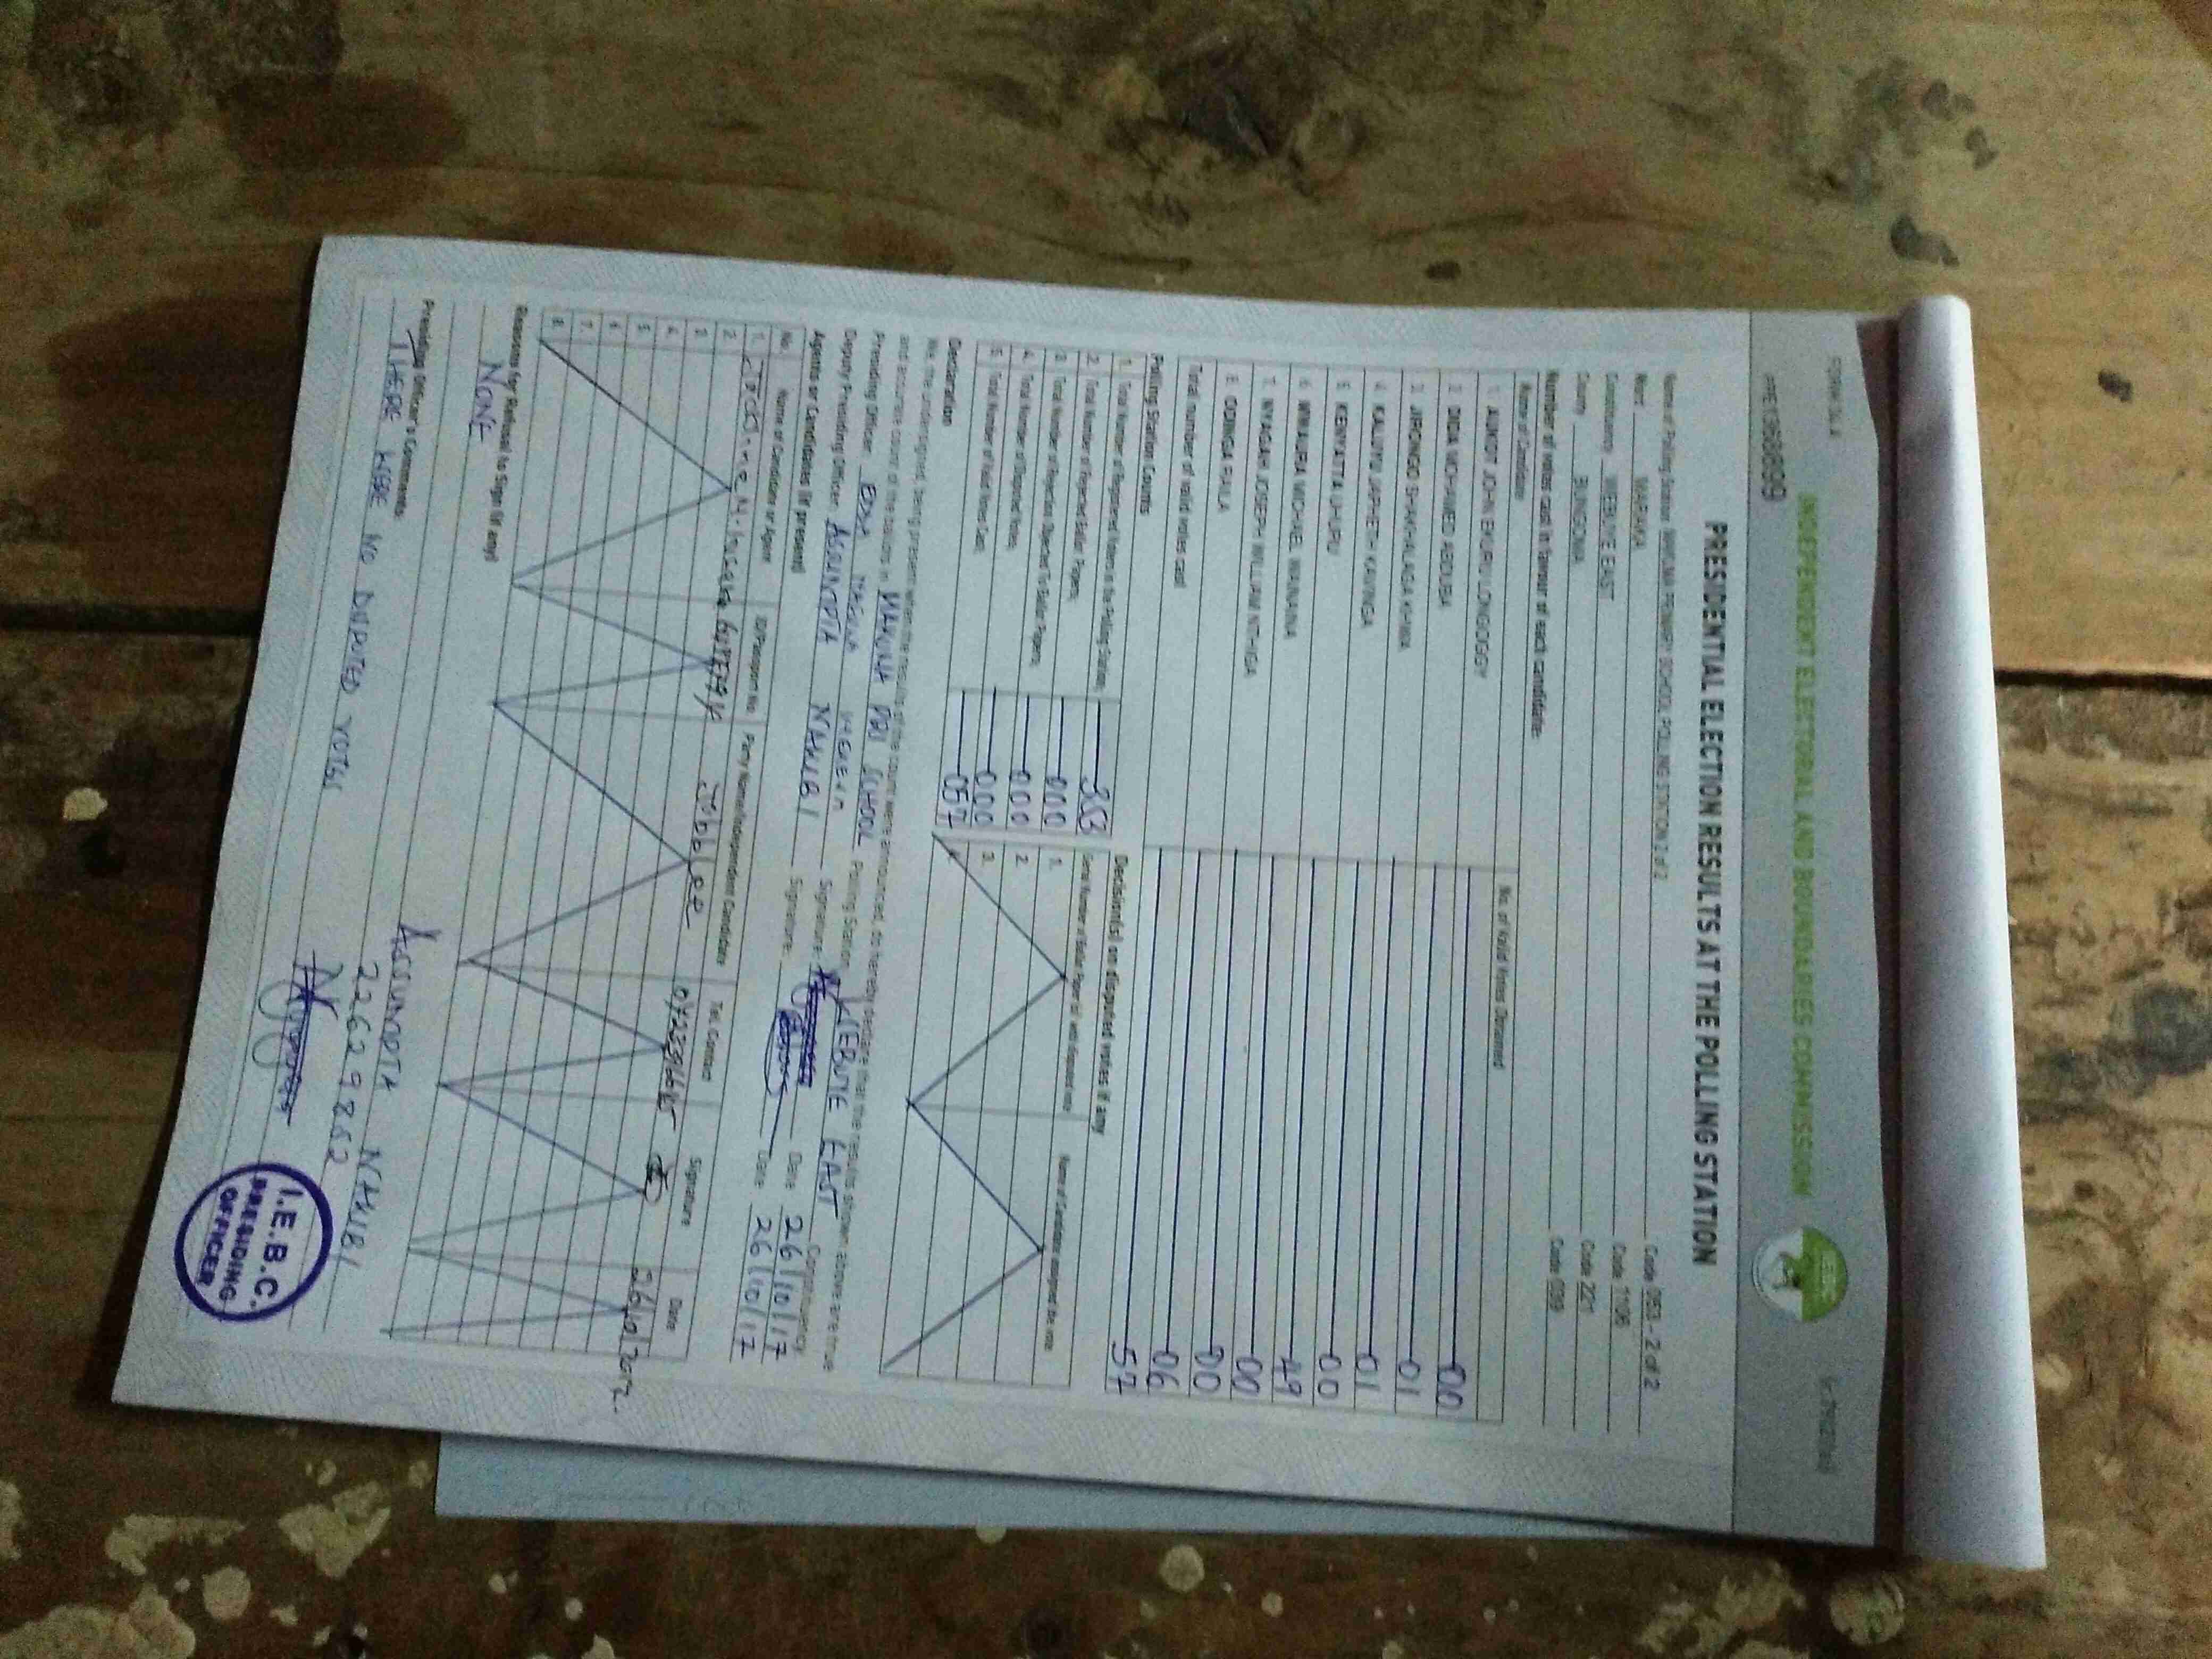 FORM 34A
INDEPENDENT ELECTORAL AND BOUNDARIES COMMISSION
PRESIDENTIAL ELECTION RESULTS AT THE POLLING STATION
Name of Polling Station MAKUMA PRIMARY SCHOOL POLLING STATION 2 of 2 Code 053 - 2 of 2
Ward MARAKA Code 1106
Constituency WEBUYE EAST Code 221
County BUNGOMA Code 039
Number of votes cast in favour of each candidate:
Name of Candidate No. of Valid Votes Obtained
1. AUKOT JOHN EKURU LONGOGGY 00
2. DIDA MOHAMED ABDUBA 01
3. JIRONGO SHAKHALAGA KHWA 01
4. KALUYU JAPHETH KAVINGA 00
5. KENYATTA UHURU 49
6. MWAURA MICHAEL WAINAINA 00
7. NYAGAH JOSEPH WILLIAM NTHIGA 00
8. ODINGA RAILA 06
Total number of valid votes cast 57
Polling Station Counts
1. Total Number of Registered Voters in the Polling Station;
2. Total Number of Rejected Ballot Papers; 000
3. Total Number of Rejection Objected To Ballot Papers; 000
4. Total Number of Disputed Votes; 000
5. Total Number of Valid Votes Cast; 057
Decision(s) on disputed votes if any
Serial Number of Ballot Paper (s) with disputed vote Name of Candidate assigned the vote
1.
2.
3.
Declaration
We, the undersigned, being present when the results of the count were announced, do hereby declare that the results shown above are true
and accurate count of the ballots in MAKUMA PRI SCHOOL Polling Station, WEBUYE EAST Constituency
Presiding Officer Signature: Date 26/10/17
Deputy Presiding Officer ASSUNCPTA NAKIBI Signature: Date 26/10/17
Agents or Candidates (if present)
No. Name of Candidate or Agent ID/Passport No. Party Name/Independent Candidate Tel. Contact Signature Date
1. Jubilee 26/10/2017
2.
3.
4.
5.
6.
7.
8.
Reasons for Refusal to Sign (if any)
NONE
Presiding Officer's Comments:
THERE WERE NO DISPUTED VOTES
22629862
I.E.B.C.
PRESIDING
OFFICER